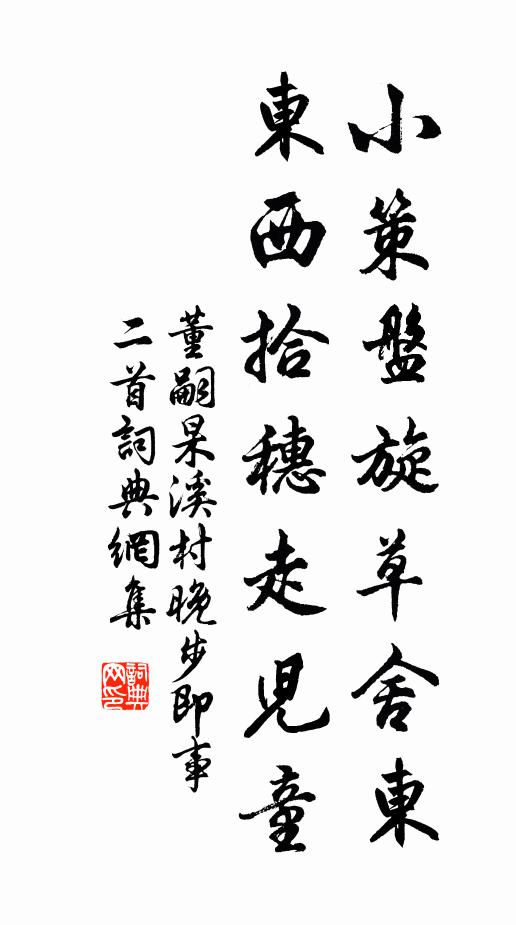 小策盤旋草舍東
東西拾穗走兒童
董嗣杲溪村晚步即事
二首詞典網集
詞典網印